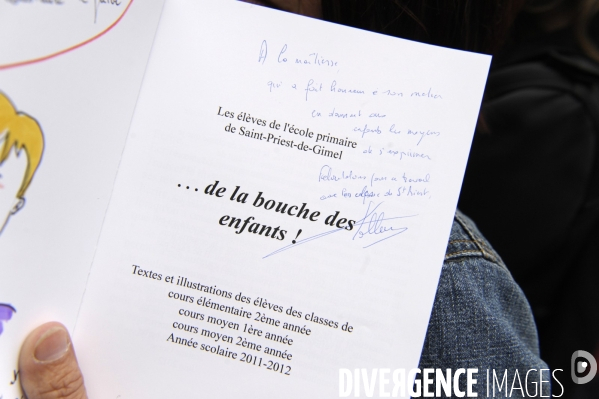 A la maîtresse
qui a fait honneur à son métier
en donnant aux
enfants les moyens
de s'exprimer
Les élèves de l'école primaire
de Saint-Priest-de-Gimel
Félicitations pour ce travail
avec les enfants de St Priest
. . . de la bouche des
enfants !
Textes et illustrations des élèves des classes de
cours élémentaire 2ème année
cours moyen 1ère année
cours moyen 2ème année
Année scolaire 2011-2012
DIVERGENCE IMAGES